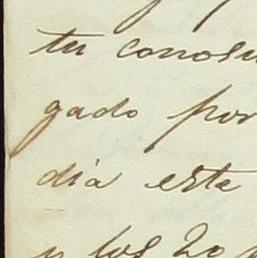 tu conosi
gado por
dia este
y los 20